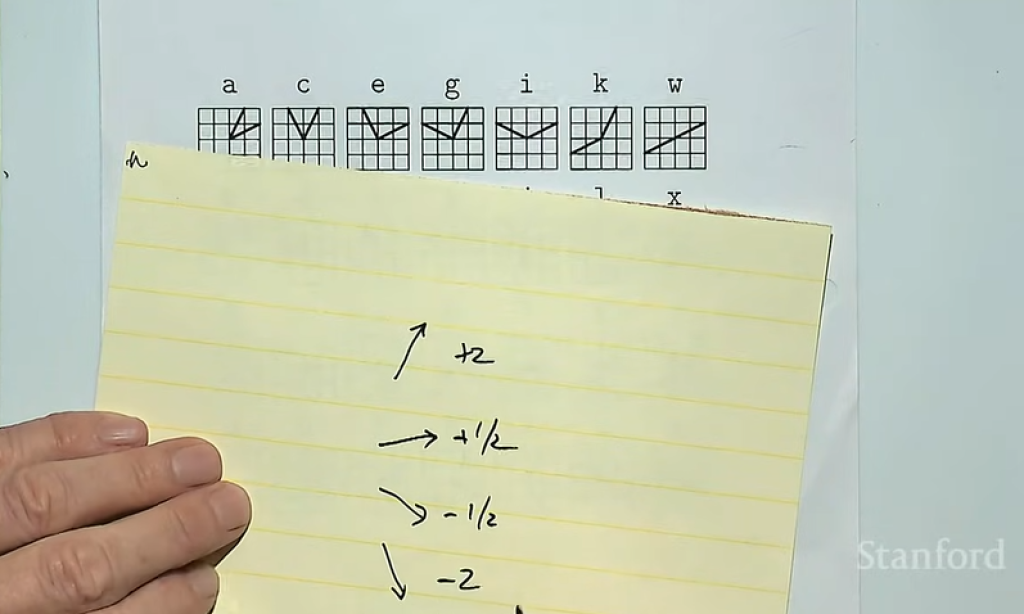 a c e g i k w
x
+2
+1/2
-1/2
-2
Stanford